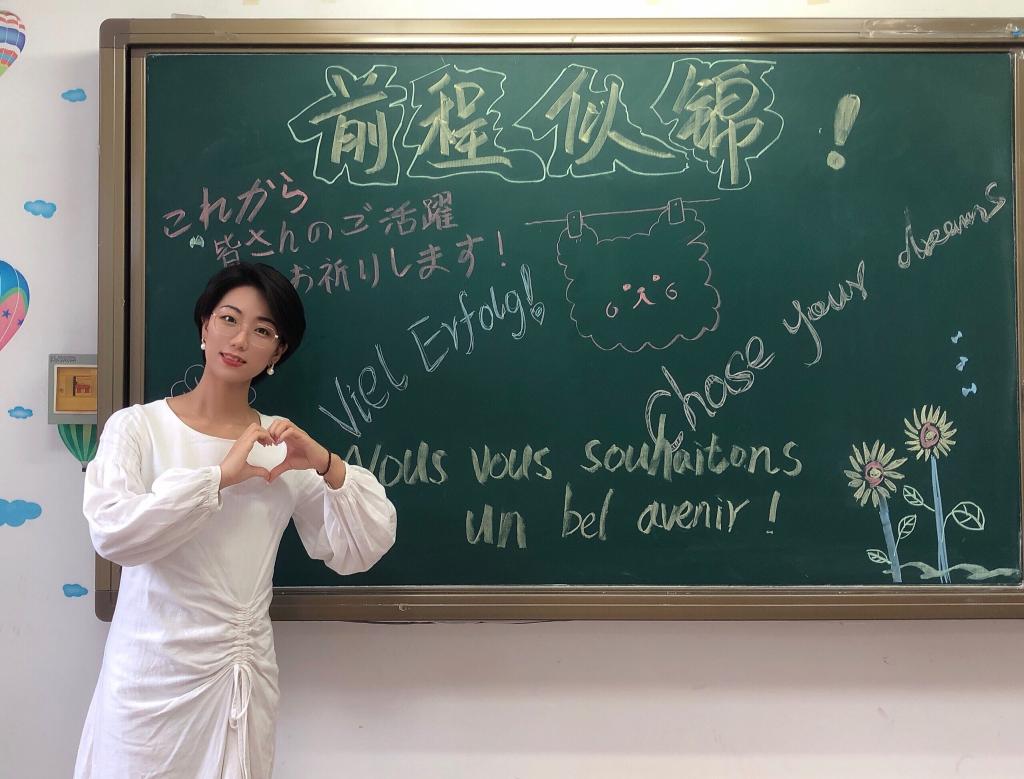 前程似锦！
これから
皆さんのご活躍
お祈りします！
Viel Erfolg!
chase your dreams
Nous vous souhaitons
un bel avenir !